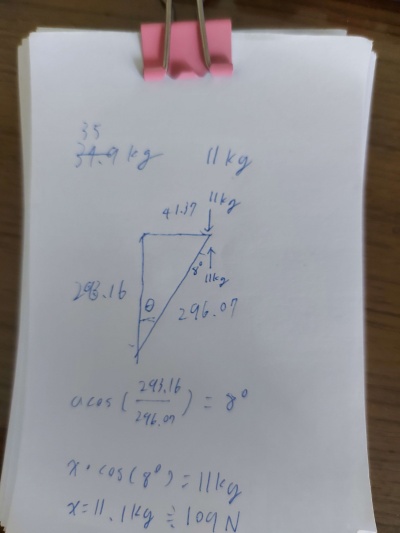 35
34.9 kg 11kg
41.37 11kg
293.16 θ 8° 11kg
296.07
acos(293.16/296.07) = 8°
x · cos(8°) = 11kg
x = 11.1kg ≒ 109 N